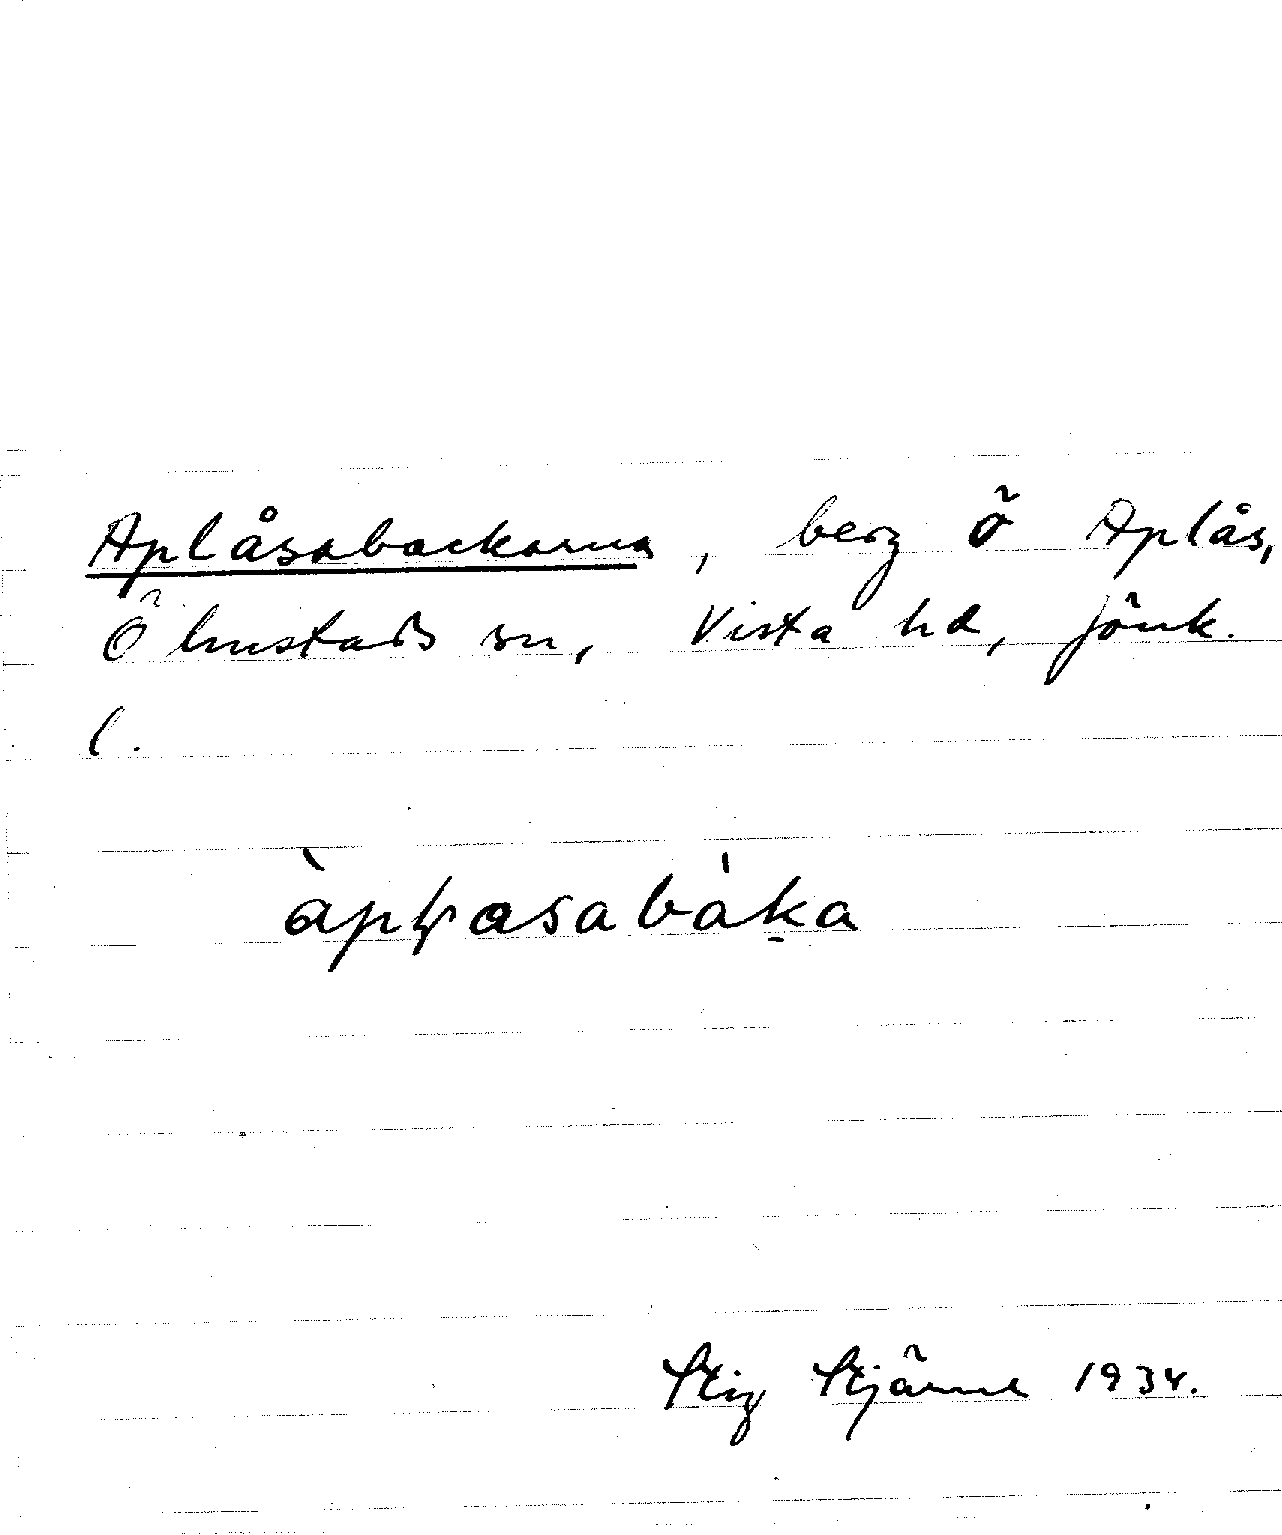 Aplåsabackarna, berg ö Aplås,
Ölmstads sn, Vista hd, Jönk.
l.
Stig Stjärne 1934.